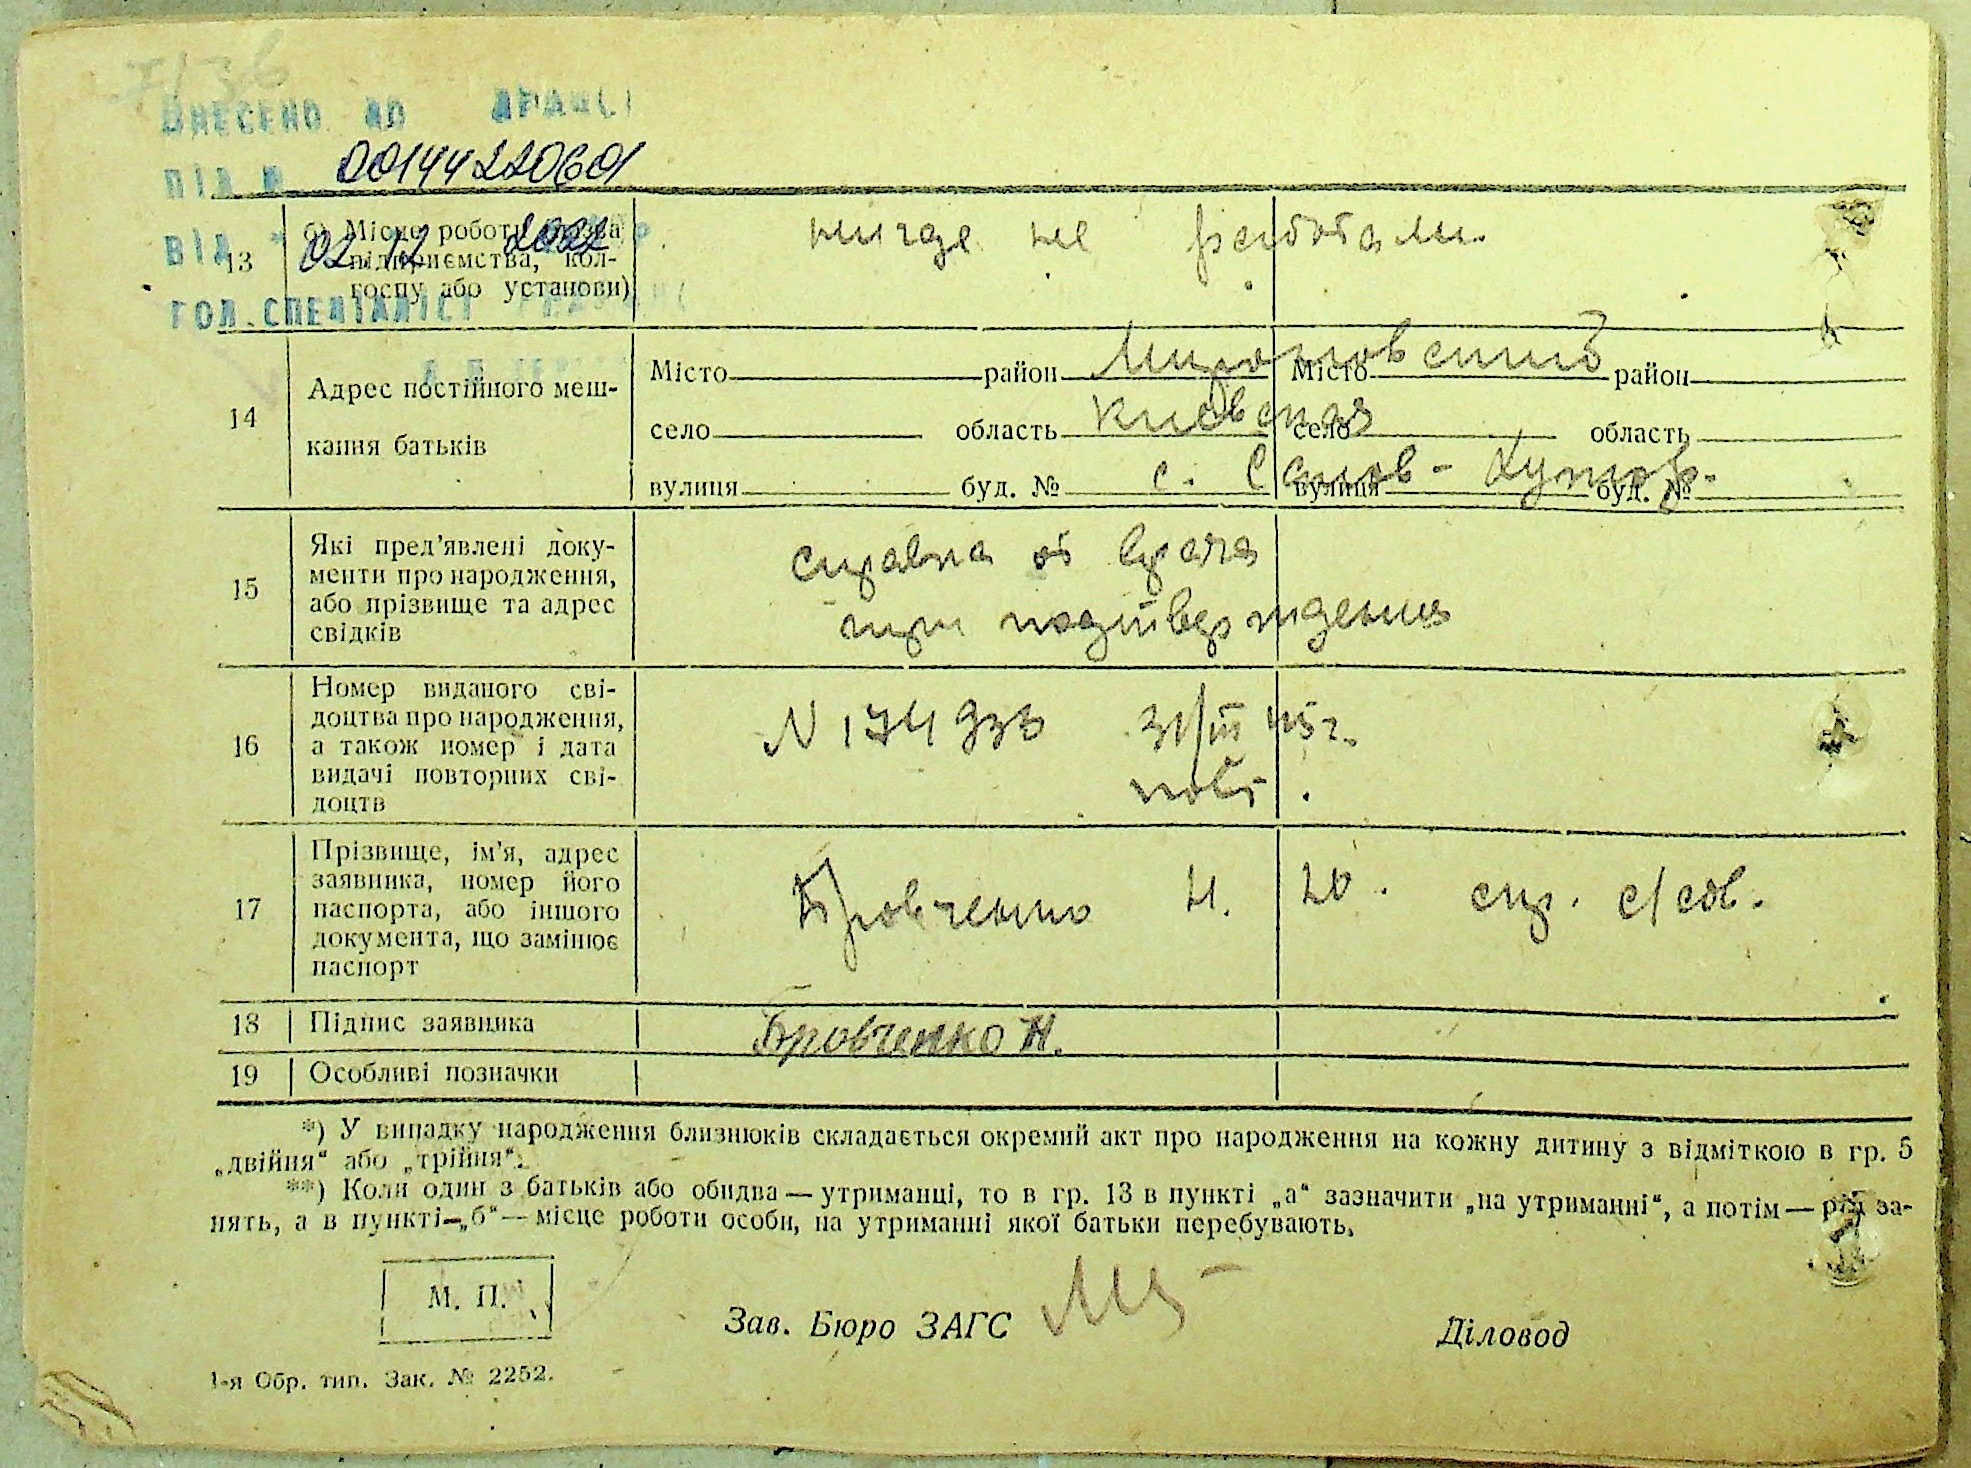 ВНЕСЕНО ДО ДРАЦС
ПІД №
00144220601
ВІД
02 12
ГОЛ. СПЕЦІАЛІСТ
13
б) Місце роботи (назва
підприємства, кол-
госпу або установи)
нигде не работали.
14
Адрес постійного меш-
кання батьків
Місто район Мироновский Місто район
село область Киевская село область
вулиця буд. № с. вулиця буд. №
15
Які пред’явлені доку-
менти про народження,
або прізвище та адрес
свідків
справка от врача
при подтверждении
16
Номер виданого сві-
доцтва про народження,
а також номер і дата
видачі повторних сві-
доцтв
N 31/III 45 г.
17
Прізвище, ім’я, адрес
заявника, номер його
паспорта, або іншого
документа, що замінює
паспорт
Бровченко Н. спр. с/сов.
18
Підпис заявника
Бровченко Н.
19
Особливі позначки
*) У випадку народження близнюків складається окремий акт про народження на кожну дитину з відміткою в гр. 5
„двійня“ або „трійня“.
**) Коли один з батьків або обидва — утриманці, то в гр. 13 в пункті „а“ зазначити „на утриманні“, а потім — рід за-
нять, а в пункті „б“ — місце роботи особи, на утриманні якої батьки перебувають.
М. П.
Зав. Бюро ЗАГС
Діловод
1-я Обр. тип. Зак. № 2252.